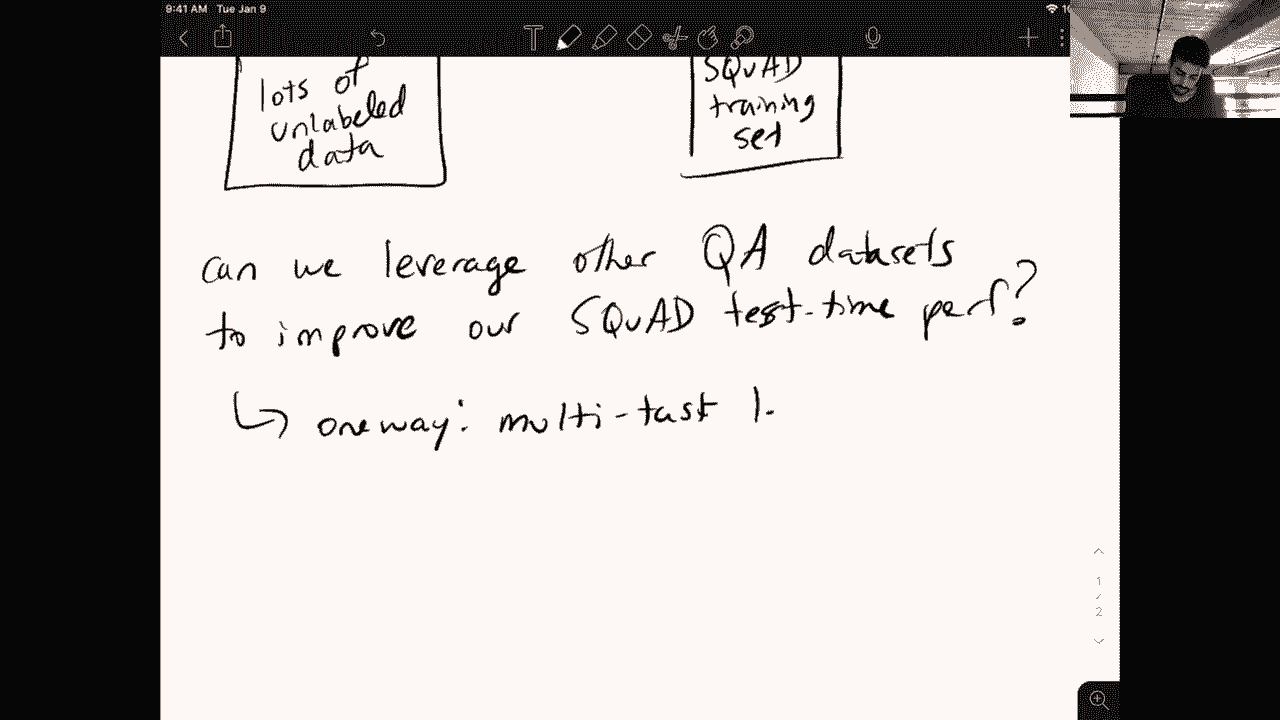 9:41 AM Tue Jan 9
lots of
unlabeled
data
SQuAD
training
set
can we leverage other QA datasets
to improve our SQuAD test-time perf?
↳ one way: multi-task l.
1
/
2